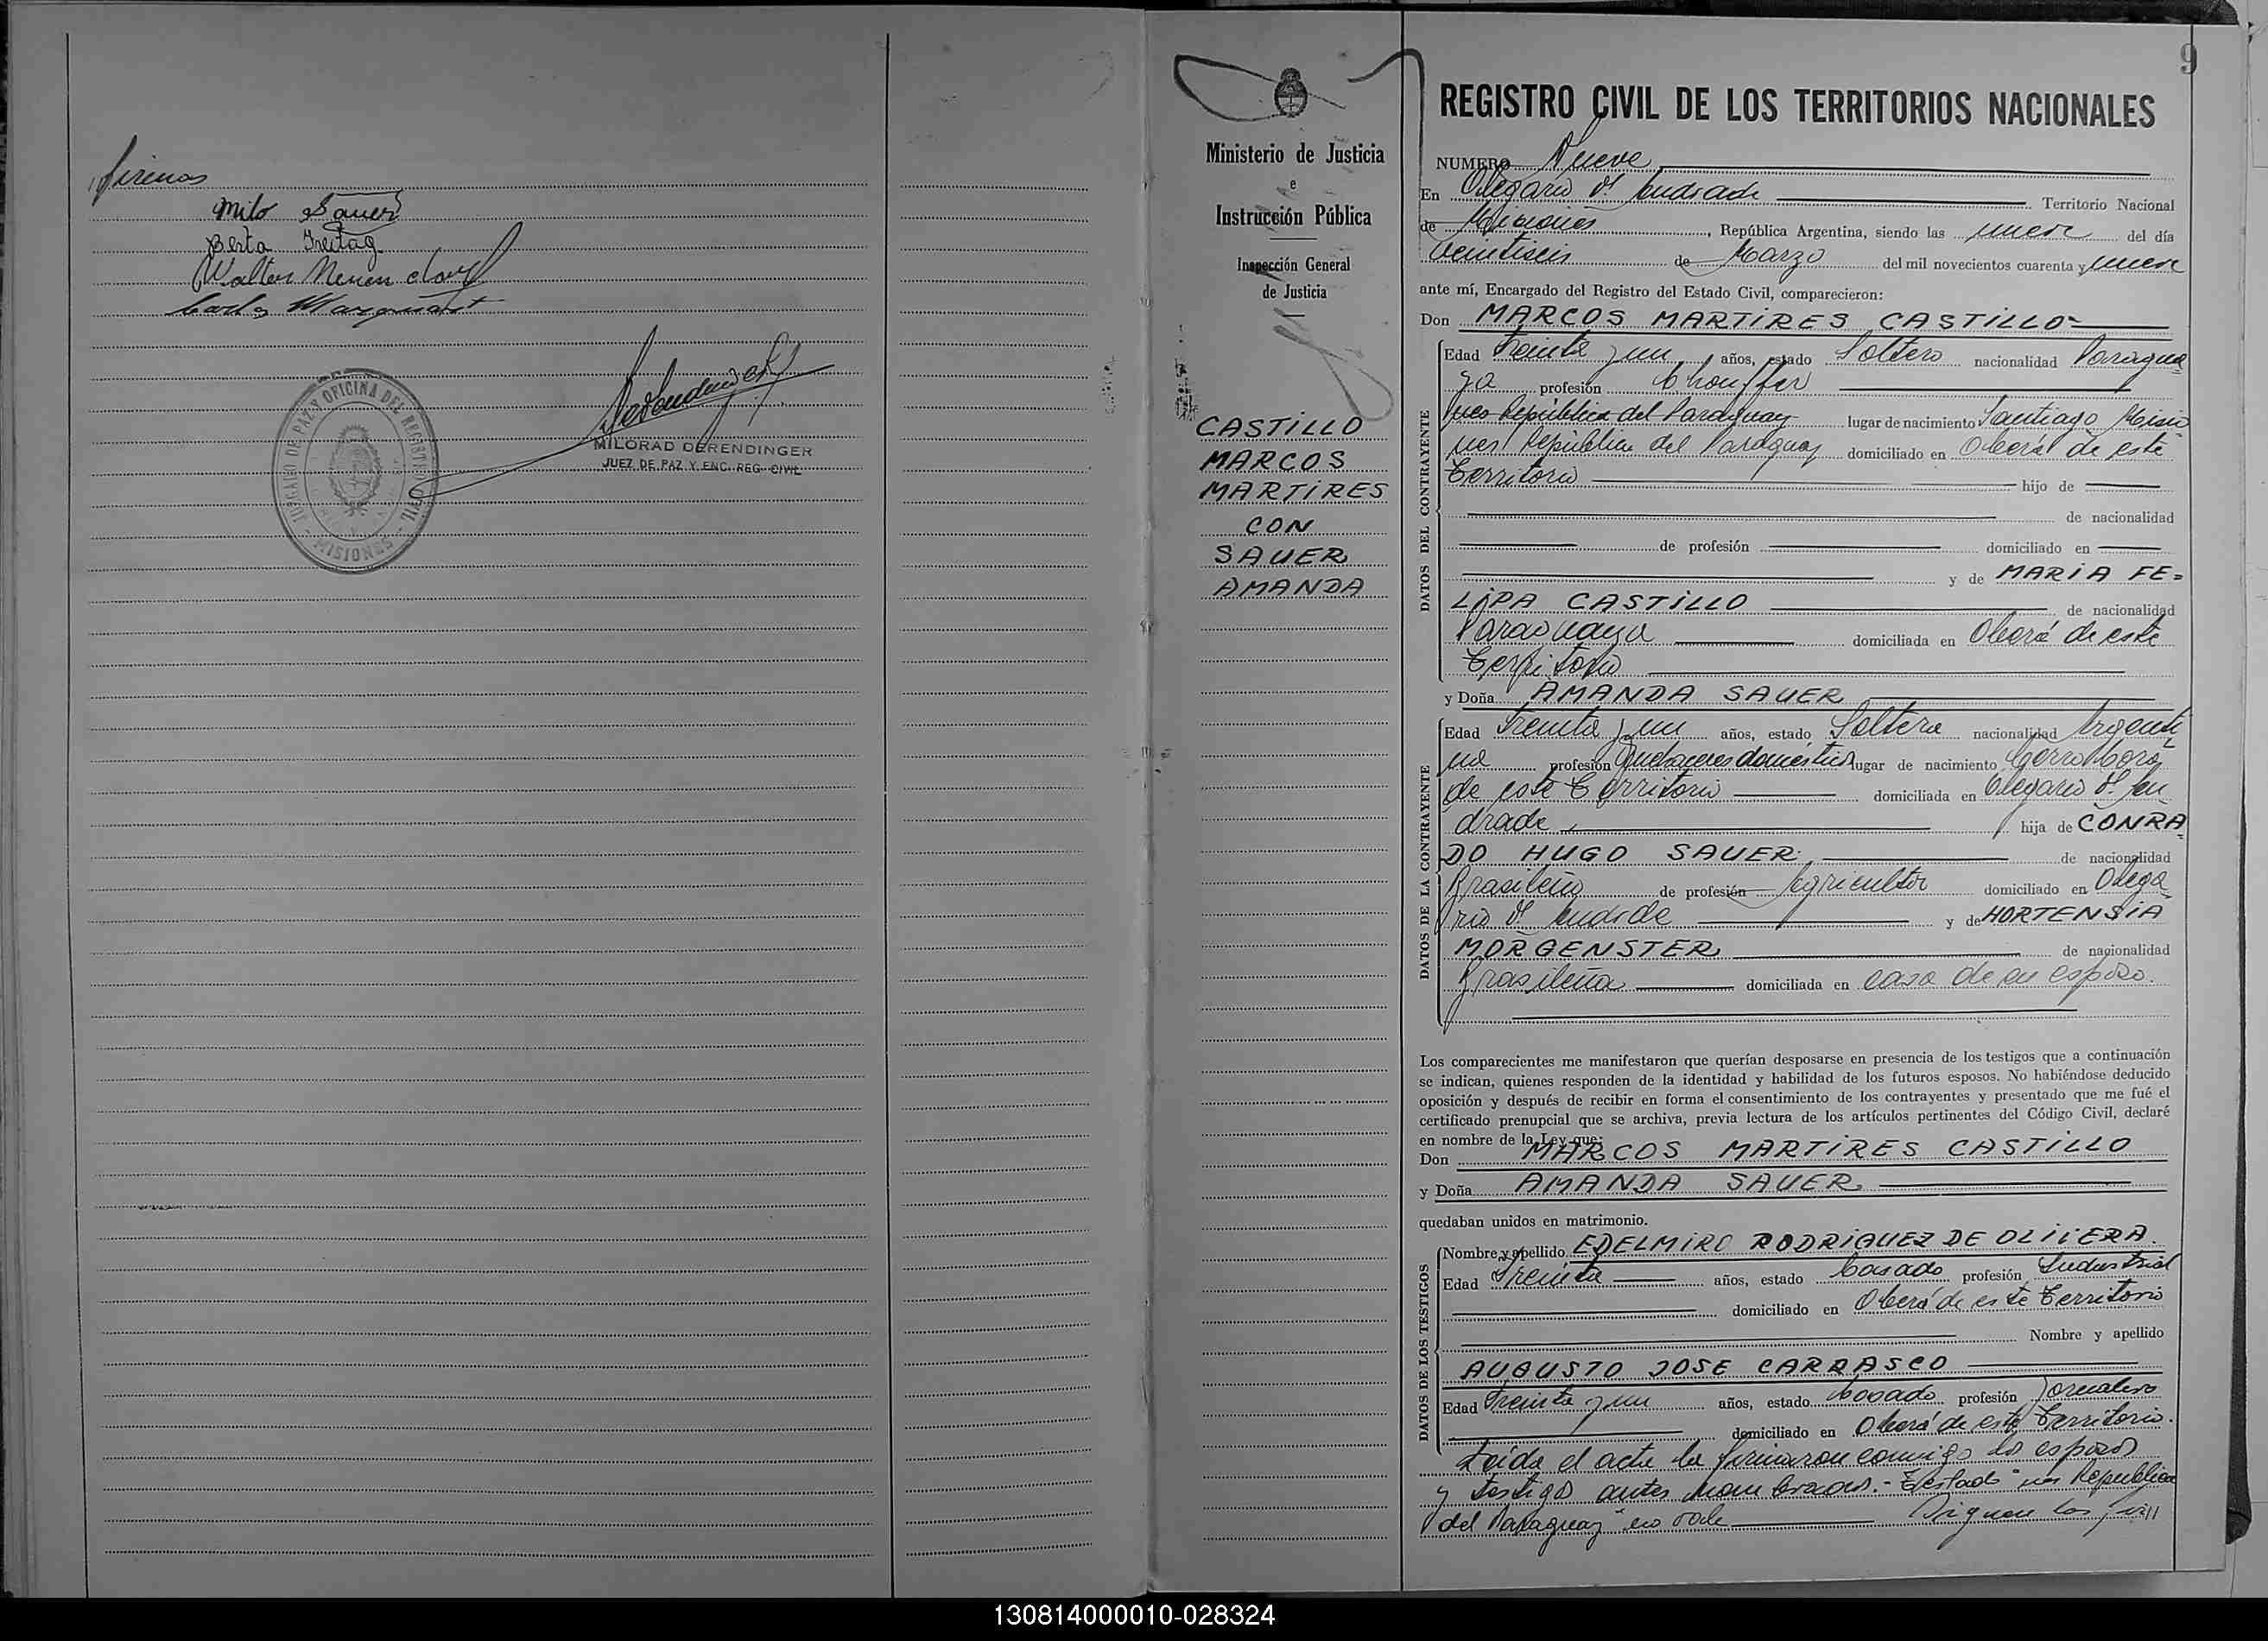 firmas
Milo Sauer
Berta Freitag
Walter
Carlos Marquart
JUZGADO DE PAZ Y OFICINA DEL REGISTRO CIVIL
MISIONES
MILORAD DERENDINGER
JUEZ DE PAZ Y ENC. REG. CIVIL
Ministerio de Justicia
e
Instrucción Pública
Inspección General
de Justicia
CASTILLO
MARCOS
MARTIRES
CON
SAUER
AMANDA
9
REGISTRO CIVIL DE LOS TERRITORIOS NACIONALES
NUMERO Nueve
En Olegario V. Andrade Territorio Nacional
de Misiones, República Argentina, siendo las nueve del día
veintiseis de Marzo del mil novecientos cuarenta y nueve
ante mí, Encargado del Registro del Estado Civil, comparecieron:
Don MARCOS MARTIRES CASTILLO
DATOS DEL CONTRAYENTE
Edad Treinta y un años, estado Soltero nacionalidad Paragua
yo profesión Chouffer
nes República del Paraguay lugar de nacimiento Santiago Misio
nes República del Paraguay domiciliado en Oberá de este
Territorio hijo de
de nacionalidad
de profesión domiciliado en
y de MARIA FE=
LIPA CASTILLO de nacionalidad
Paraguaya domiciliada en Oberá de este
Territorio
y Doña AMANDA SAUER
DATOS DE LA CONTRAYENTE
Edad Treinta y un años, estado Soltera nacionalidad Argenti
na profesión Quehaceres domésticos lugar de nacimiento Cerro Corá
de este Territorio domiciliada en Olegario V. An
drade hija de CONRA
DO HUGO SAUER de nacionalidad
Brasileño de profesión Agricultor domiciliado en Olega
rio V. Andrade y de HORTENSIA
MORGENSTER de nacionalidad
Brasileña domiciliada en casa de su esposo.
Los comparecientes me manifestaron que querían desposarse en presencia de los testigos que a continuación
se indican, quienes responden de la identidad y habilidad de los futuros esposos. No habiéndose deducido
oposición y después de recibir en forma el consentimiento de los contrayentes y presentado que me fué el
certificado prenupcial que se archiva, previa lectura de los artículos pertinentes del Código Civil, declaré
en nombre de la Ley que:
Don MARCOS MARTIRES CASTILLO
y Doña AMANDA SAUER
quedaban unidos en matrimonio.
DATOS DE LOS TESTIGOS
Nombre y apellido EDELMIRO RODRIGUEZ DE OLIVERA.
Edad Treinta años, estado Casado profesión Industrial
domiciliado en Oberá de este Territorio
Nombre y apellido
AUGUSTO JOSE CARRASCO
Edad Treinta y un años, estado Casado profesión Jornalero
domiciliado en Oberá de este Territorio.
Leida el acta la firmaron conmigo los esposos
y testigos antes nombrados.- Testado "nes Republica
del Paraguay" no vale Siguen las fir//
130814000010-028324